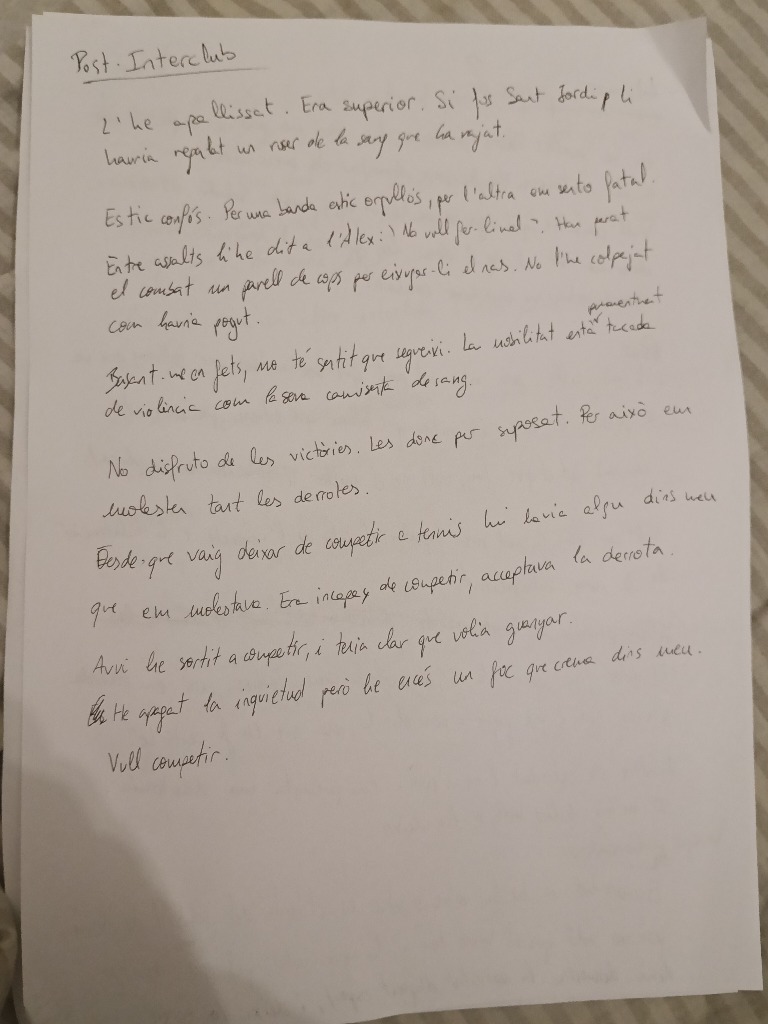 Post-Interclub
L'he apallissat. Era superior. Si fos Sant Jordi, li
hauria regalat un roser de la sang que ha rajat.
Estic confós. Per una banda estic orgullós, per l'altra em sento fatal.
Entre assalts li he dit a l'Àlex: "No vull fer-li mal". Han parat
el combat un parell de cops per eixugar-li el nas. No l'he colpejat
com havia pogut.
Basant-me en fets, no té sentit que segueixi. La nobilitat està tacada
de violència com la seva camiseta de sang.
No disfruto de les victòries. Les dono per suposat. Per això em
molesten tant les derrotes.
Desde que vaig deixar de competir a tennis hi havia algu dins meu
que em molestava. Era incapaç de competir, acceptava la derrota.
Avui he sortit a competir, i tenia clar que volia guanyar.
He apagat la inquietud però he encés un foc que crema dins meu.
Vull competir.